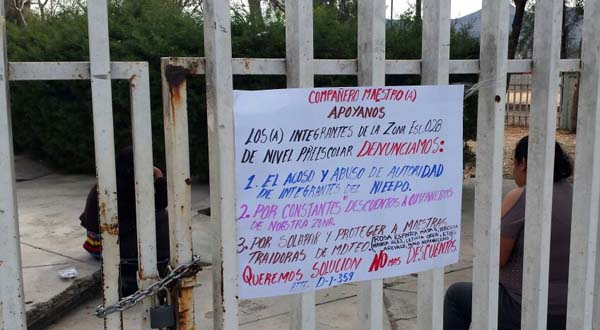 COMPAÑERO MAESTRO(A)
APOYANOS
LOS(A) INTEGRANTES DE LA ZONA ESC. 028
DE NIVEL PREESCOLAR DENUNCIAMOS:
1. EL ACOSO Y ABUSO DE AUTORIDAD
DE INTEGRANTES DEL NIEEPO.
2. POR CONSTANTES "DESCUENTOS A COMPAÑEROS
DE NUESTRA ZONA.
3. POR SOLAPAR Y PROTEGER A MAESTRAS
TRAIDORAS DE MDTEO. ROSA ESPINOZA
QUEREMOS SOLUCIÓN NO MAS DESCUENTOS
ATTE. D-I-359